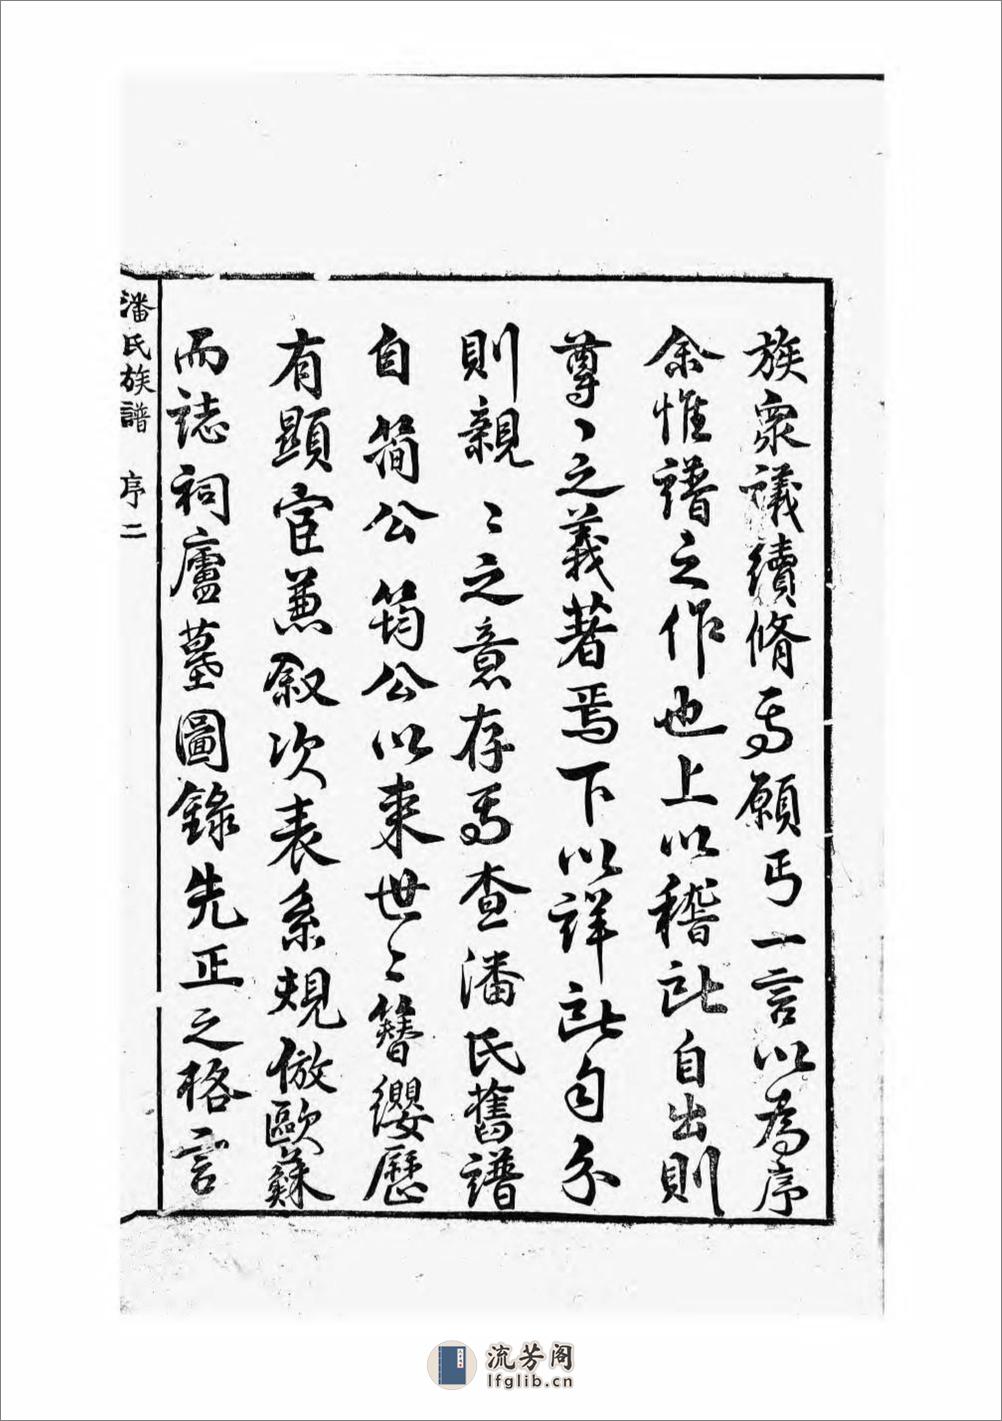 族衆議續脩焉願丐一言以為序
余惟譜之作也上以稽所自出則
尊〻之義著焉下以詳所自分
則親〻之意存焉查潘氏舊譜
自簡公筠公以来世〻簪纓歷
有顯宦兼叙次表系規倣歐蘇
而誌祠廬墓圖錄先正之格言
潘氏族譜 序 二
流芳阁
lfglib.cn